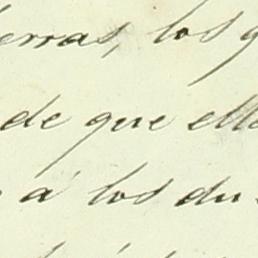 erras, los q
de que ello
á los du